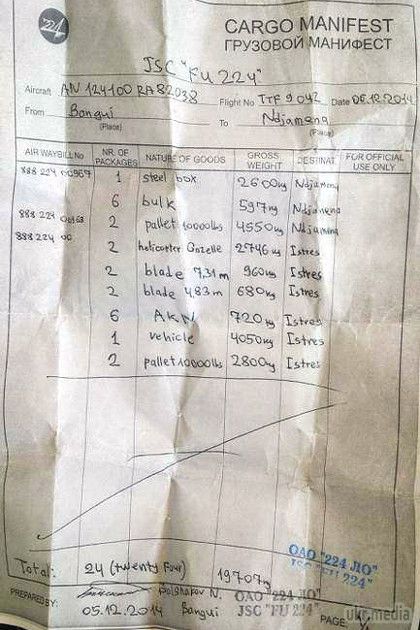 224
CARGO MANIFEST
ГРУЗОВОЙ МАНИФЕСТ
JSC "FU 224"
Aircraft AN 124-100 RA 82038 Flight No TTF 9042 Date 06.12.2014
From Bangui To Ndjamena
(Place) (Place)
AIR WAYBILL No NR. OF PACKAGES NATURE OF GOODS GROSS WEIGHT DESTINAT. FOR OFFICIAL USE ONLY
888 224 00967 1 steel box 2600kg Ndjamena
6 bulk 597kg Ndjamena
888 224 00968 2 pallet 10000lbs 4550kg Ndjamena
888 224 00 2 helicopter Gazelle 2746kg Istres
2 blade 7,31 m 960kg Istres
2 blade 4,83 m 680kg Istres
6 AKN 720kg Istres
1 vehicle 4050kg Istres
2 pallet 10000lbs 2800kg Istres
Total: 24 (twenty Four) 19707kg
ОАО "224 ЛО"
JSC "FU 224"
PREPARED BY: Bolshakov N.
05.12.2014 Bangui
ОАО "224 ЛО"
JSC "FU 224"
PAGE
ukr.media